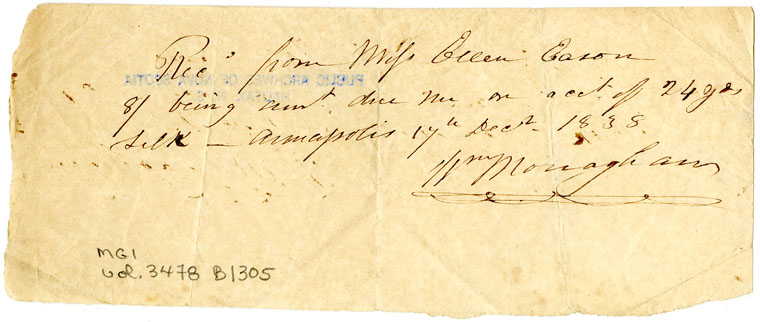 Rec'd from Miss Ellen Eason
8/ being amt due me on acct of 24 yds
silk – Annapolis 17th Decr 1838
Wm Monaghan
PUBLIC ARCHIVES OF NOVA SCOTIA
HALIFAX, N.S.
MG1
vol. 3478 B1305